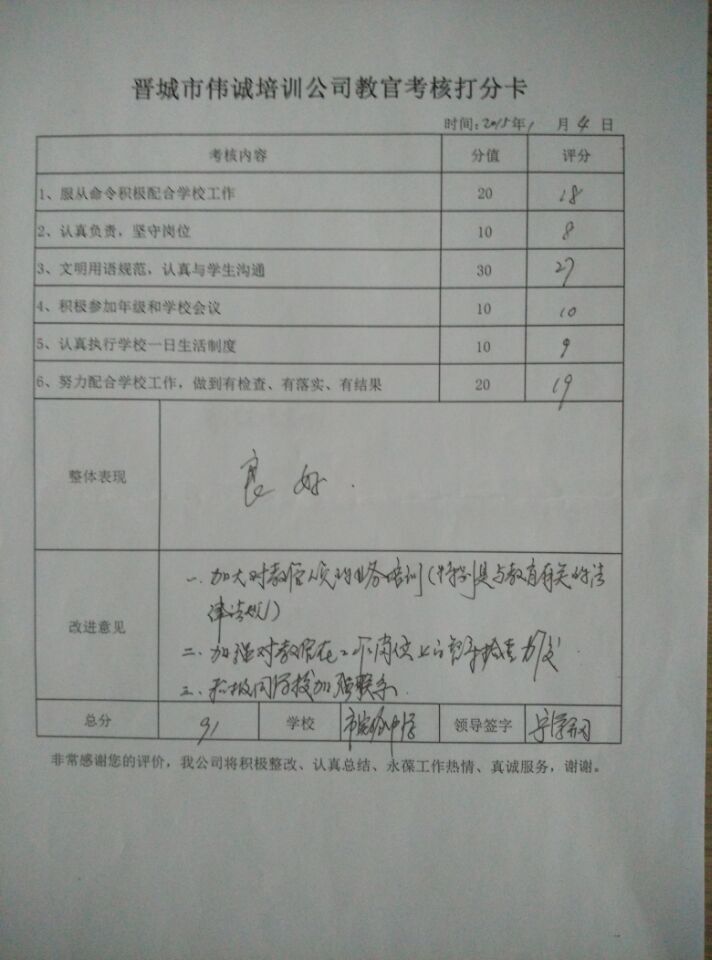 晋城市伟诚培训公司教官考核打分卡
时间:2015年1月4日
考核内容 分值 评分
1、服从命令积极配合学校工作 20 18
2、认真负责，坚守岗位 10 8
3、文明用语规范，认真与学生沟通 30 27
4、积极参加年级和学校会议 10 10
5、认真执行学校一日生活制度 10 9
6、努力配合学校工作，做到有检查、有落实、有结果 20 19
整体表现 良好.
改进意见
一.加大对教官人员的业务培训(特别是与教育有关的法
律法规)
二.加强对教官在工作岗位上的督导检查力度
三.积极同学校加强联系.
总分 91 学校 市实验中学 领导签字
非常感谢您的评价，我公司将积极整改、认真总结、永葆工作热情、真诚服务，谢谢。